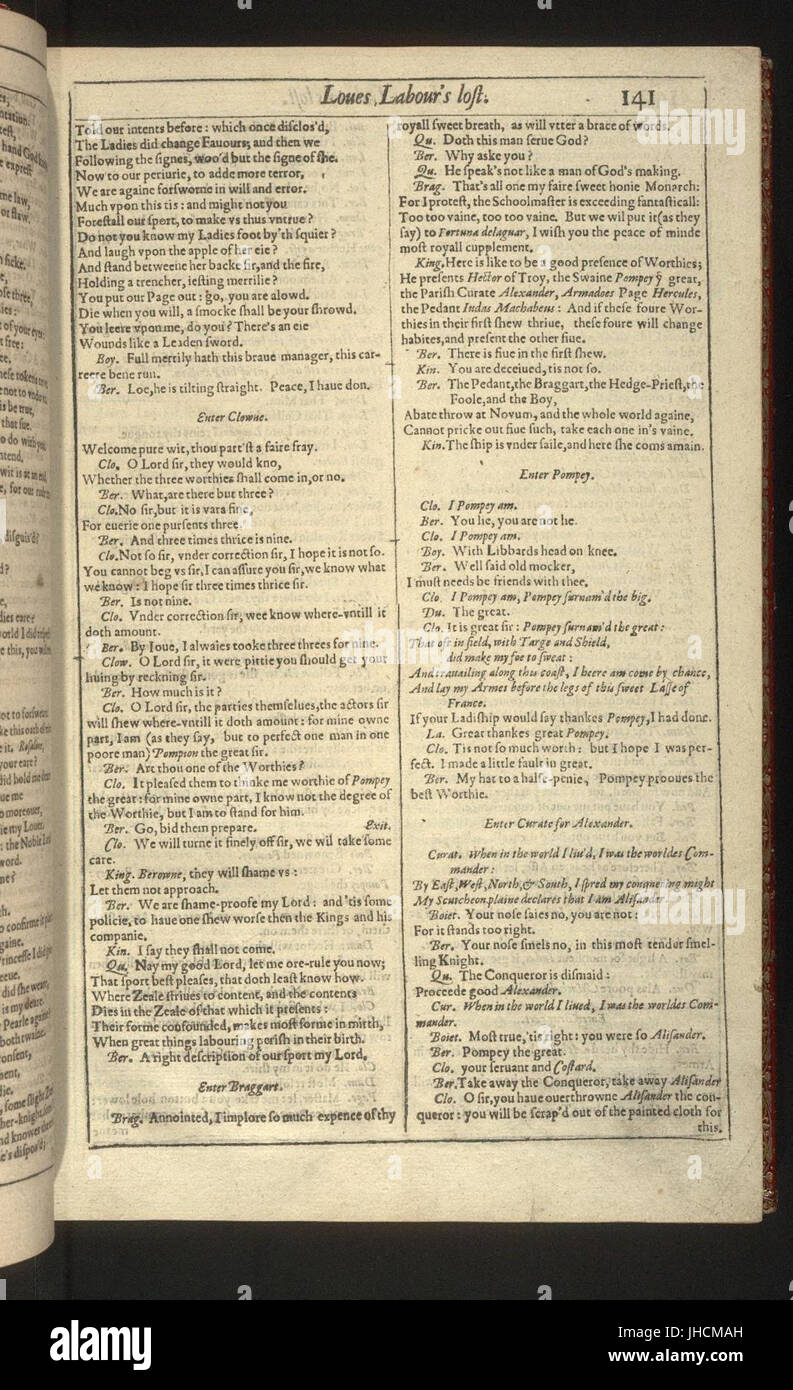 Loues Labour's lost. 141
Told our intents before: which once disclos'd,
The Ladies did change Fauours; and then we
Following the signes, woo'd but the signe of she.
Now to our periurie, to adde more terror,
We are againe forsworne in will and error.
Much vpon this tis: and might not you
Forestall our sport, to make vs thus vntrue?
Do not you know my Ladies foot by'th squier?
And laugh vpon the apple of her eie?
And stand betweene her backe sir, and the fire,
Holding a trencher, iesting merrilie?
You put our Page out: go, you are alowd.
Die when you will, a smocke shall be your shrowd.
You leere vpon me, do you? There's an eie
Wounds like a Leaden sword.
Boy. Full merrily hath this braue manager, this car-
reere bene run.
Ber. Loe, he is tilting straight. Peace, I haue don.
Enter Clowne.
Welcome pure wit, thou part'st a faire fray.
Clo. O Lord sir, they would kno,
Whether the three worthies shall come in, or no.
Ber. What, are there but three?
Clo. No sir, but it is vara fine,
For euerie one pursents three.
Ber. And three times thrice is nine.
Clo. Not so sir, vnder correction sir, I hope it is not so.
You cannot beg vs sir, I can assure you sir, we know what
we know: I hope sir three times thrice sir.
Ber. Is not nine.
Clo. Vnder correction sir, wee know where-vntill it
doth amount.
Ber. By Ioue, I alwaies tooke three threes for nine.
Clow. O Lord sir, it were pittie you should get your
liuing by reckning sir.
Ber. How much is it?
Clo. O Lord sir, the parties themselues, the actors sir
will shew where-vntill it doth amount: for mine owne
part, I am (as they say, but to perfect one man in one
poore man) Pompion the great sir.
Ber. Art thou one of the Worthies?
Clo. It pleased them to thinke me worthie of Pompey
the great: for mine owne part, I know not the degree of
the Worthie, but I am to stand for him.
Ber. Go, bid them prepare. Exit.
Clo. We will turne it finely off sir, we wil take some
care.
King. Berowne, they will shame vs:
Let them not approach.
Ber. We are shame-proofe my Lord: and 'tis some
policie, to haue one shew worse then the Kings and his
companie.
Kin. I say they shall not come.
Qu. Nay my good Lord, let me ore-rule you now;
That sport best pleases, that doth least know how.
Where Zeale striues to content, and the contents
Dies in the Zeale of that which it presents:
Their forme confounded, makes most forme in mirth,
When great things labouring perish in their birth.
Ber. A right description of our sport my Lord.
Enter Braggart.
Brag. Annointed, I implore so much expence of thy
royall sweet breath, as will vtter a brace of words.
Qu. Doth this man serue God?
Ber. Why aske you?
Qu. He speak's not like a man of God's making.
Brag. That's all one my faire sweet honie Monarch:
For I protest, the Schoolmaster is exceeding fantasticall:
Too too vaine, too too vaine. But we wil put it (as they
say) to Fortuna delaguar, I wish you the peace of minde
most royall cupplement.
King. Here is like to be a good presence of Worthies;
He presents Hector of Troy, the Swaine Pompey ye great,
the Parish Curate Alexander, Armadoes Page Hercules,
the Pedant Iudas Machabeus: And if these foure Wor-
thies in their first shew thriue, these foure will change
habites, and present the other fiue.
Ber. There is fiue in the first shew.
Kin. You are deceiued, tis not so.
Ber. The Pedant, the Braggart, the Hedge-Priest, the
Foole, and the Boy,
Abate throw at Novum, and the whole world againe,
Cannot pricke out fiue such, take each one in's vaine.
Kin. The ship is vnder saile, and here she coms amain.
Enter Pompey.
Clo. I Pompey am.
Ber. You lie, you are not he.
Clo. I Pompey am.
Boy. With Libbards head on knee.
Ber. Well said old mocker,
I must needs be friends with thee.
Clo. I Pompey am, Pompey surnam'd the big.
Du. The great.
Clo. It is great sir: Pompey surnam'd the great:
That oft in field, with Targe and Shield,
did make my foe to sweat:
And trauailing along this coast, I heere am come by chance,
And lay my Armes before the legs of this sweet Lasse of
France.
If your Ladiship would say thankes Pompey, I had done.
La. Great thankes great Pompey.
Clo. Tis not so much worth: but I hope I was per-
fect. I made a little fault in great.
Ber. My hat to a halfe-penie, Pompey prooues the
best Worthie.
Enter Curate for Alexander.
Curat. When in the world I liu'd, I was the worldes Com-
mander:
By East, West, North, & South, I spred my conquering might
My Scutcheon plaine declares that I am Alisander
Boiet. Your nose saies no, you are not:
For it stands too right.
Ber. Your nose smels no, in this most tender smel-
ling Knight.
Qu. The Conqueror is dismaid:
Proceede good Alexander.
Cur. When in the world I liued, I was the worldes Com-
mander.
Boiet. Most true, 'tis right: you were so Alisander.
Ber. Pompey the great.
Clo. your seruant and Costard.
Ber. Take away the Conqueror, take away Alisander
Clo. O sir, you haue ouerthrowne Alisander the con-
queror: you will be scrap'd out of the painted cloth for
this.
alamy
Image ID: JHCMAH
www.alamy.com